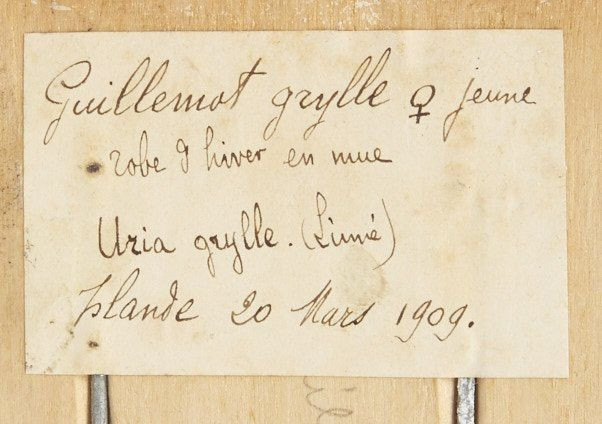 Guillemot grylle ♀ jeune
robe d'hiver en mue
Uria grylle. (Linné)
Islande 20 Mars 1909.